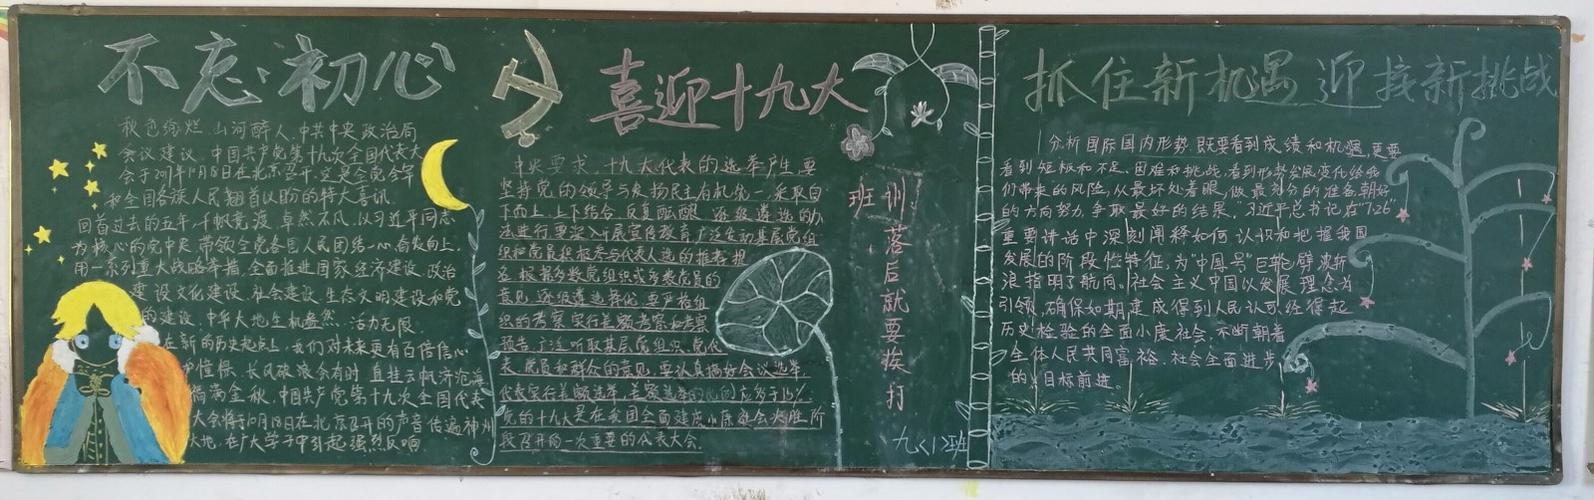 不忘初心
秋色绚烂 山河醉人,中共中央政治局
会议建议,中国共产党第十九次全国代表大
会于2017年10月18日在北京召开,
和全国各族人民翘首以盼的特大喜讯.
回首过去的五年,千帆竞渡,卓然不凡,以习近平同志
为核心的党中央,带领全党各国人民团结一心,奋发向上,
用一系列重大战略举措,全面推进国家经济建设,政治
建设文化建设,社会建设,生态文明建设和党
的建设,中华大地生机盎然,活力无限.
在新的历史起点上,我们对未来更有百倍信心
憧憬,长风破浪会有时,直挂云帆济沧海
满金秋,中国共产党第十九次全国代表
大会将于10月18日在北京召开的声音传遍神州
大地,在广大学子中引起强烈反响
喜迎十九大
中央要求,十九大代表的选举产生,要
坚持党的领导与发扬民主有机统一,采取自
下而上,上下结合,反复酝酿,逐级遴选的办
法进行.要深入开展宣传教育,广泛发动基层党组
织和党员积极参与代表人选的推荐提
名,根据多数党组织或多数党员的
意见,逐级遴选择优,要严格组
织的考察,实行差额考察和考察
预告,广泛听取基层党组织、党代
表、党员和群众的意见,要认真搞好会议选举,
代表实行差额选举,差额选举的比例应多于15%.
党的十九大是在我国全面建成小康社会决胜阶
段召开的一次重要的代表大会.
班训
落后就要挨打
九(1)班
抓住新机遇 迎接新挑战
分析国际国内形势,既要看到成绩和机遇,更要
看到短板和不足、困难和挑战,看到形势发展变化给我
们带来的风险,从最坏处着眼,做最充分的准备,朝好
的方向努力,争取最好的结果,习近平总书记在"7.26"
重要讲话中深刻阐释如何认识和把握我国
发展的阶段性特征,为"中国号"巨轮劈波斩
浪指明了航向.社会主义中国以发展理念为
引领,确保如期建成得到人民认可、经得起
历史检验的全面小康社会,不断朝着
全体人民共同富裕、社会全面进步
的目标前进.